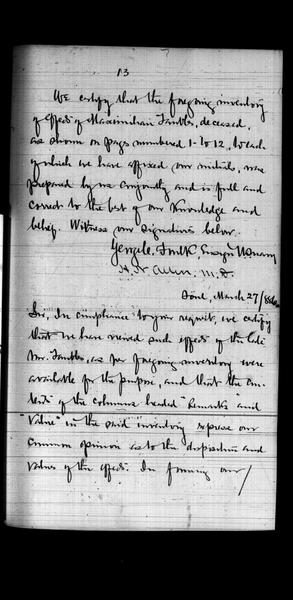 13
We certify that the foregoing inventory
of effects of Maximilian Taubles, deceased,
as shown on pages numbered 1 to 12, to each
of which we have affixed our initials, were
prepared by us conjointly and is full and
correct to the best of our knowledge and
belief. Witness our signatures below.
George C. Foulk, Ensign U.S. Navy
H. N. Allen, M.D.
Söul, March 27/86
Sir, In compliance to your request, we certify
that we have viewed such effects of the late
Mr. Taubles, as per foregoing inventory were
available for the purpose, and that the con-
tents of the columns headed "Remarks" and
"Value" in the said inventory express our
common opinion as to the disposition and
values of the effects. In forming our/